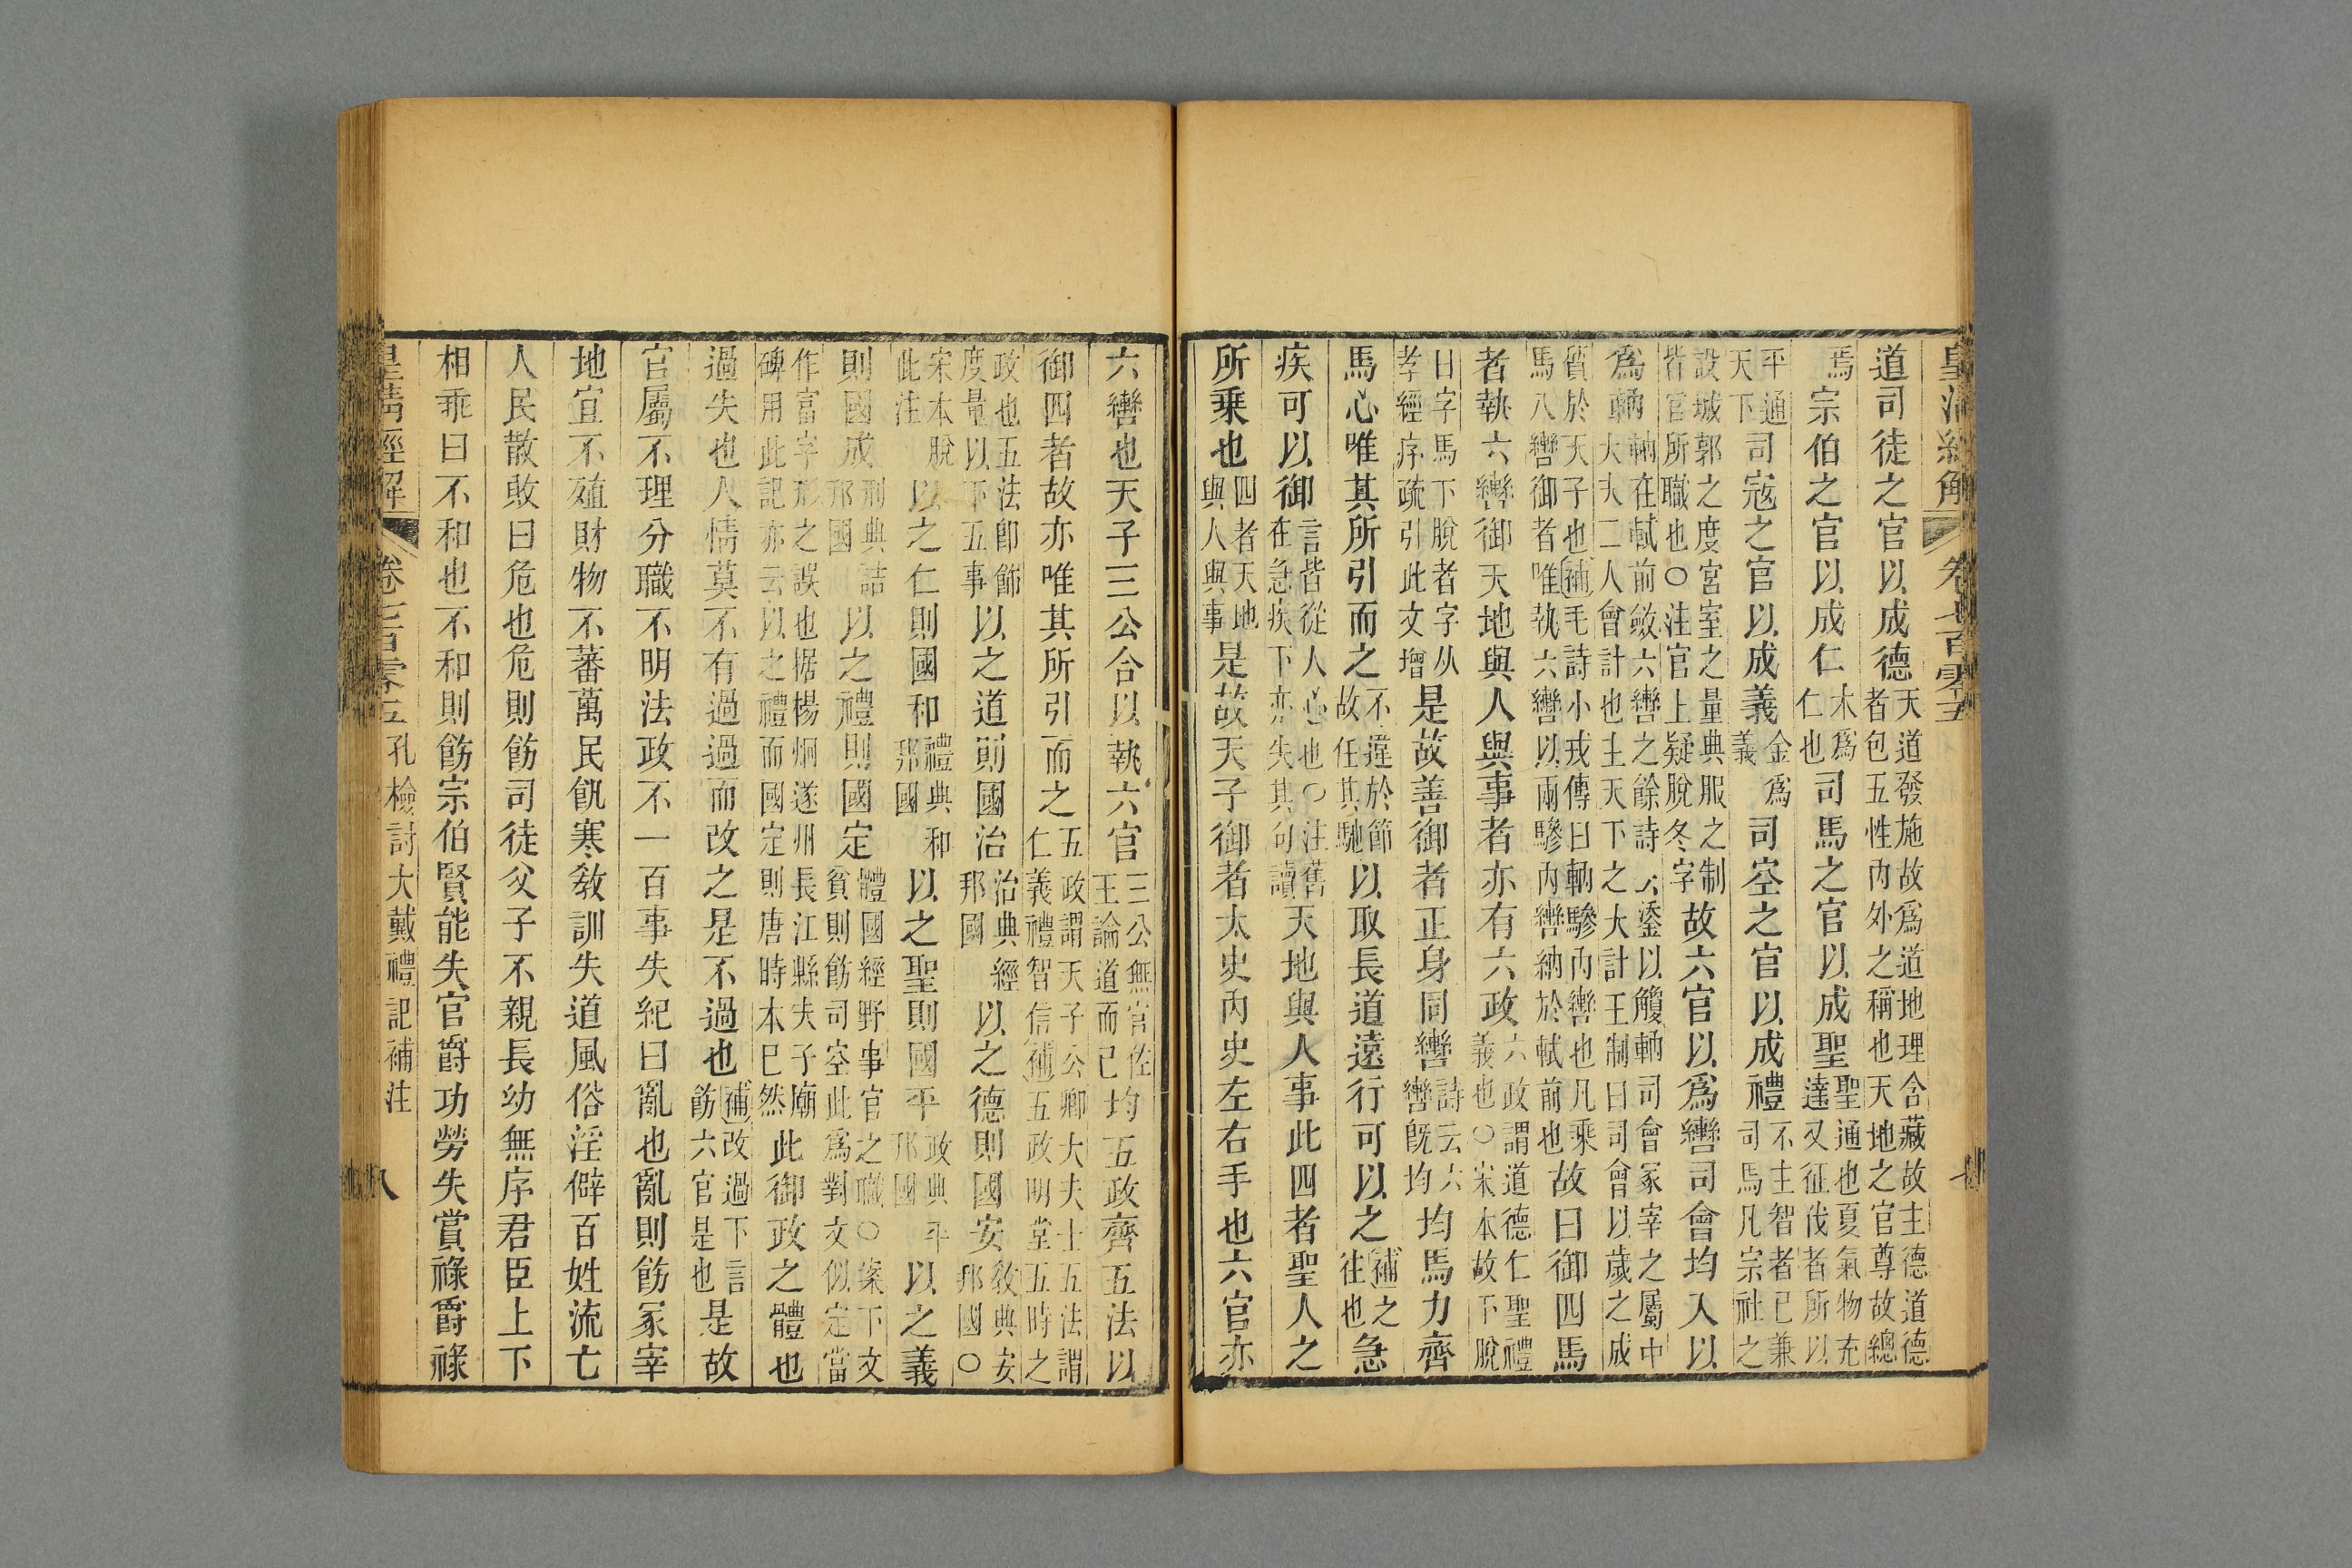 皇清經解 卷七百零五
道司徒之官以成德天道發施故爲道地理含藏故主德道德者包五性內外之稱也天地之官尊故總
焉宗伯之官以成仁木爲仁也司馬之官以成聖聖通也夏氣物充達又征伐者所以
平通天下司寇之官以成義金爲義司空之官以成禮不主智者已兼司馬凡宗社之
設城郭之度宮室之量典服之制皆官所職也○注官上疑脫冬字故六官以爲轡司會均入以
爲軜軜在軾前斂六轡之餘詩云鋈以觼軜司會冢宰之屬中大夫二人會計也主天下之大計王制曰司會以歲之成
質於天子也補毛詩小戎傳曰軜驂內轡也凡乘馬八轡御者唯執六轡以兩驂內轡納於軾前也故曰御四馬
者執六轡御天地與人與事者亦有六政六政謂道德仁聖禮義也○宋本故下脫
曰字馬下脫者字从孝經序疏引此文增是故善御者正身同轡詩云六轡旣均均馬力齊
馬心唯其所引而之不違於節故任其馳以取長道遠行可以之補之往也急
疾可以御言皆從人心也○注舊在急疾下亦失其句讀天地與人事此四者聖人之
所乘也四者天地與人與事是故天子御者太史內史左右手也六官亦
六轡也天子三公合以執六官三公無官佐王論道而已均五政齊五法以
御四者故亦唯其所引而之五政謂天子公卿大夫士五法謂仁義禮智信補五政明堂五時之
政也五法卽飾度量以下五事以之道則國治治典經邦國以之德則國安教典安邦國○
宋本脫此注以之仁則國和禮典和邦國以之聖則國平政典平邦國以之義
則國成刑典詰邦國以之禮則國定體國經野事官之職○案下文貧則飭司空此爲對文似定當
作富字形之誤也据楊炯遂州長江縣夫子廟碑用此記亦云以之禮而國定則唐時本已然此御政之體也
過失也人情莫不有過過而改之是不過也補改過下言飭六官是也是故
官屬不理分職不明法政不一百事失紀曰亂也亂則飭冢宰
地宜不殖財物不蕃萬民飢寒教訓失道風俗淫僻百姓流亡
人民散敗曰危也危則飭司徒父子不親長幼無序君臣上下
相乖曰不和也不和則飭宗伯賢能失官爵功勞失賞祿爵祿
皇清經解 卷七百零五 孔檢討大戴禮記補注 八